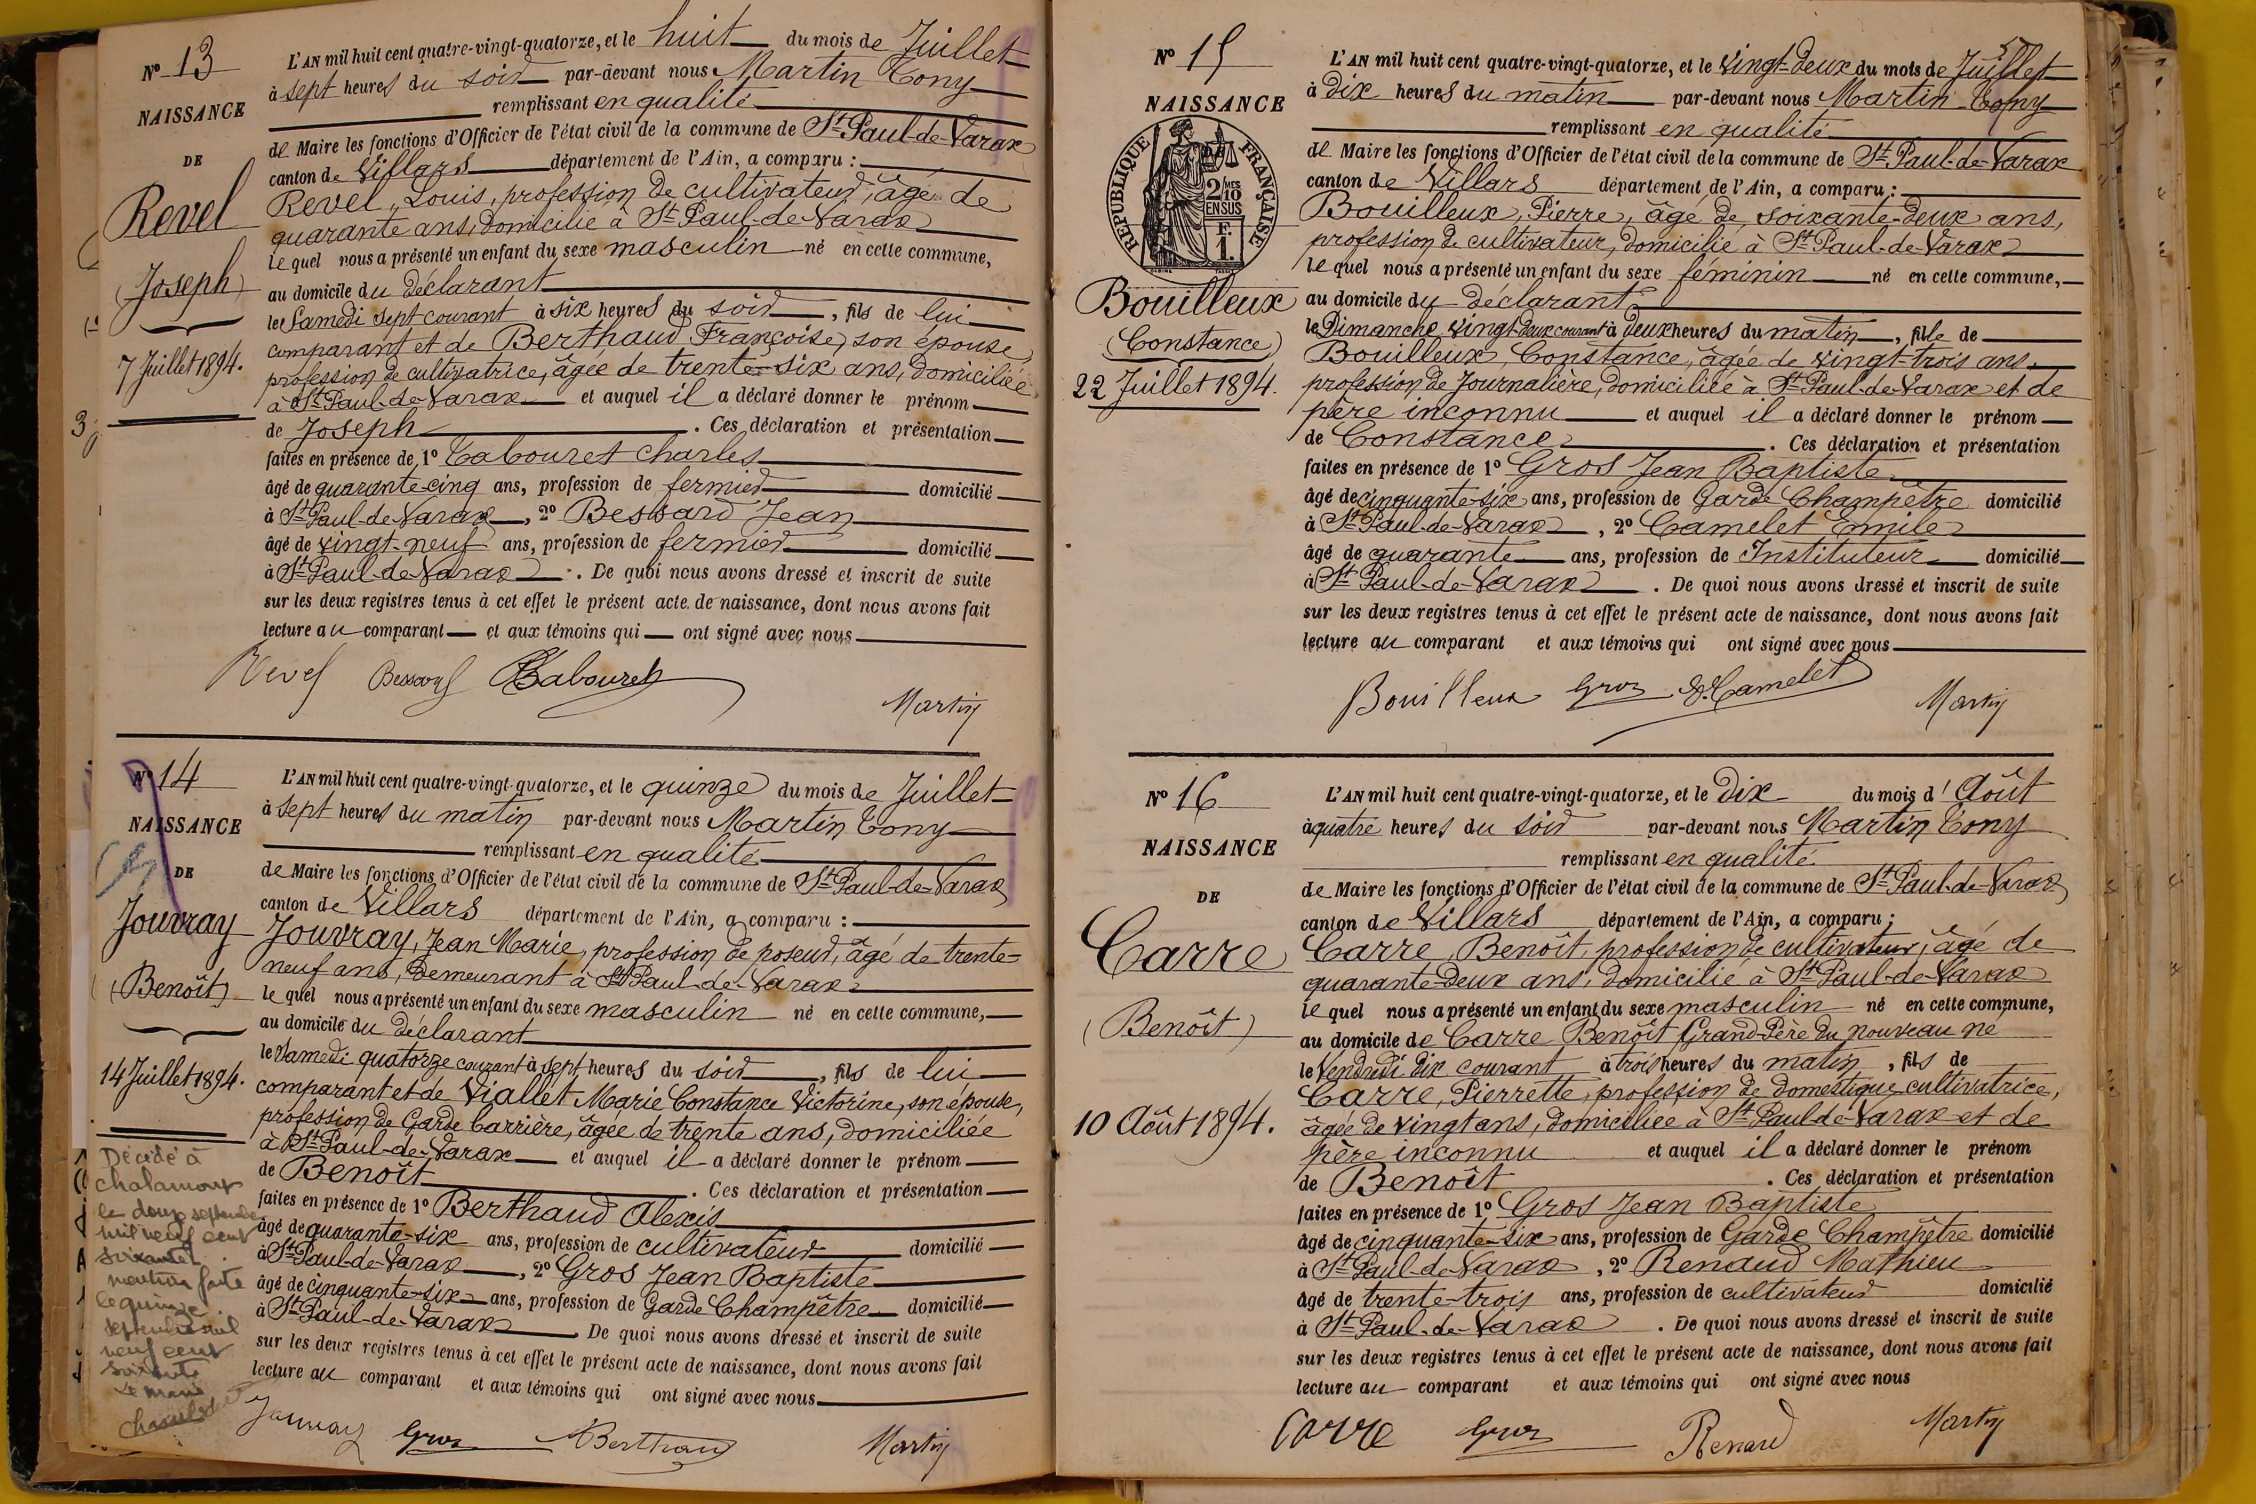 Nº 13
NAISSANCE
DE
Revel
(Joseph)
7 Juillet 1894.
L'AN mil huit cent quatre-vingt-quatorze, et le huit du mois de Juillet
à sept heures du soir par-devant nous Martin Tony
remplissant en qualité
de Maire les fonctions d'Officier de l'état civil de la commune de St Paul-de-Varax
canton de Villars département de l'Ain, a comparu :
Revel, Louis, profession de cultivateur, âgé de
quarante ans, domicilié à St Paul-de-Varax
lequel nous a présenté un enfant du sexe masculin né en cette commune,
au domicile du déclarant
le Samedi sept courant à six heures du soir, fils de lui
comparant et de Berthaud Françoise, son épouse,
profession de cultivatrice, âgée de trente-six ans, domiciliée
à St Paul-de-Varax et auquel il a déclaré donner le prénom
de Joseph. Ces déclaration et présentation
faites en présence de 1º Tabouret Charles
âgé de quarante-cinq ans, profession de fermier domicilié
à St Paul-de-Varax, 2º Bessard Jean
âgé de vingt-neuf ans, profession de fermier domicilié
à St Paul-de-Varax. De quoi nous avons dressé et inscrit de suite
sur les deux registres tenus à cet effet le présent acte de naissance, dont nous avons fait
lecture au comparant et aux témoins qui ont signé avec nous
Revel Bessard Tabouret
Martin
Nº 14
NAISSANCE
DE
Jouvray
(Benoît)
14 Juillet 1894.
Décédé à
Chalamont
le douze septembre
mil neuf cent
soixante
mention faite
le quinze
septembre mil
neuf cent
soixante
Le Maire
L'AN mil huit cent quatre-vingt-quatorze, et le quinze du mois de Juillet
à sept heures du matin par-devant nous Martin Tony
remplissant en qualité
de Maire les fonctions d'Officier de l'état civil de la commune de St Paul-de-Varax
canton de Villars département de l'Ain, a comparu :
Jouvray, Jean Marie, profession de poseur, âgé de trente-
neuf ans, demeurant à St Paul-de-Varax
lequel nous a présenté un enfant du sexe masculin né en cette commune,
au domicile du déclarant
le Samedi quatorze courant à sept heures du soir, fils de lui
comparant et de Viallet Marie Constance Victorine, son épouse,
profession de Garde barrière, âgée de trente ans, domiciliée
à St Paul-de-Varax et auquel il a déclaré donner le prénom
de Benoît. Ces déclaration et présentation
faites en présence de 1º Berthaud Alexis
âgé de quarante-six ans, profession de cultivateur domicilié
à St Paul-de-Varax, 2º Gros Jean Baptiste
âgé de cinquante-six ans, profession de Garde Champêtre domicilié
à St Paul-de-Varax. De quoi nous avons dressé et inscrit de suite
sur les deux registres tenus à cet effet le présent acte de naissance, dont nous avons fait
lecture au comparant et aux témoins qui ont signé avec nous
Jouvray Gros Berthaud Martin
Nº 15
NAISSANCE
DE
RÉPUBLIQUE FRANÇAISE
2/10MES
EN SUS
F.
1.
Bouilleux
(Constance)
22 Juillet 1894.
L'AN mil huit cent quatre-vingt-quatorze, et le vingt-deux du mois de Juillet
à dix heures du matin par-devant nous Martin Tony
remplissant en qualité
de Maire les fonctions d'Officier de l'état civil de la commune de St Paul-de-Varax
canton de Villars département de l'Ain, a comparu :
Bouilleux, Pierre, âgé de soixante-deux ans,
profession de cultivateur, domicilié à St Paul-de-Varax
lequel nous a présenté un enfant du sexe féminin né en cette commune,
au domicile du déclarant
le Dimanche vingt-deux courant à deux heures du matin, fille de
Bouilleux, Constance, âgée de vingt-trois ans,
profession de Journalière, domiciliée à St Paul-de-Varax et de
père inconnu et auquel il a déclaré donner le prénom
de Constance. Ces déclaration et présentation
faites en présence de 1º Gros Jean Baptiste
âgé de cinquante-six ans, profession de Garde Champêtre domicilié
à St Paul-de-Varax, 2º Camelet Emile
âgé de quarante ans, profession de Instituteur domicilié
à St Paul-de-Varax. De quoi nous avons dressé et inscrit de suite
sur les deux registres tenus à cet effet le présent acte de naissance, dont nous avons fait
lecture au comparant et aux témoins qui ont signé avec nous
Bouilleux Gros E. Camelet Martin
Nº 16
NAISSANCE
DE
Carre
(Benoît)
10 Août 1894.
L'AN mil huit cent quatre-vingt-quatorze, et le dix du mois d'Août
à quatre heures du soir par-devant nous Martin Tony
remplissant en qualité
de Maire les fonctions d'Officier de l'état civil de la commune de St Paul-de-Varax
canton de Villars département de l'Ain, a comparu :
Carre, Benoît, profession de cultivateur, âgé de
quarante-deux ans, domicilié à St Paul-de-Varax
lequel nous a présenté un enfant du sexe masculin né en cette commune,
au domicile de Carre Benoît Grand-Père du nouveau né
le Vendredi dix courant à trois heures du matin, fils de
Carre, Pierrette, profession de domestique cultivatrice,
âgée de vingt ans, domiciliée à St Paul-de-Varax et de
père inconnu et auquel il a déclaré donner le prénom
de Benoît. Ces déclaration et présentation
faites en présence de 1º Gros Jean Baptiste
âgé de cinquante-six ans, profession de Garde Champêtre domicilié
à St Paul-de-Varax, 2º Renaud Mathieu
âgé de trente-trois ans, profession de cultivateur domicilié
à St Paul-de-Varax. De quoi nous avons dressé et inscrit de suite
sur les deux registres tenus à cet effet le présent acte de naissance, dont nous avons fait
lecture au comparant et aux témoins qui ont signé avec nous
Carre Gros Renaud Martin